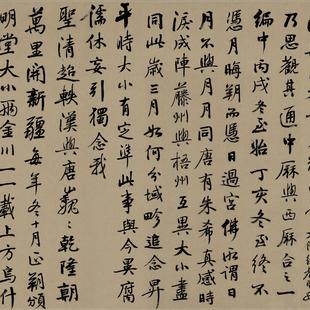 乃思觀其通中厤與西厤合之一
編中丙戌冬至始丁亥冬至終不
憑月晦朔而憑日過宮佛所謂日
月不與月月同唐有朱希真感時
淚成陣藤州與梧州互異大小盡
同此歲三月如何分域畛追念昇
平時大小有定準此事與今異腐
儒休妄引獨念我
聖清超軼漢與唐巍〻乾隆朝
萬里開新疆每年冬十月正朔頒
明堂大小兩金川一一載上方烏什